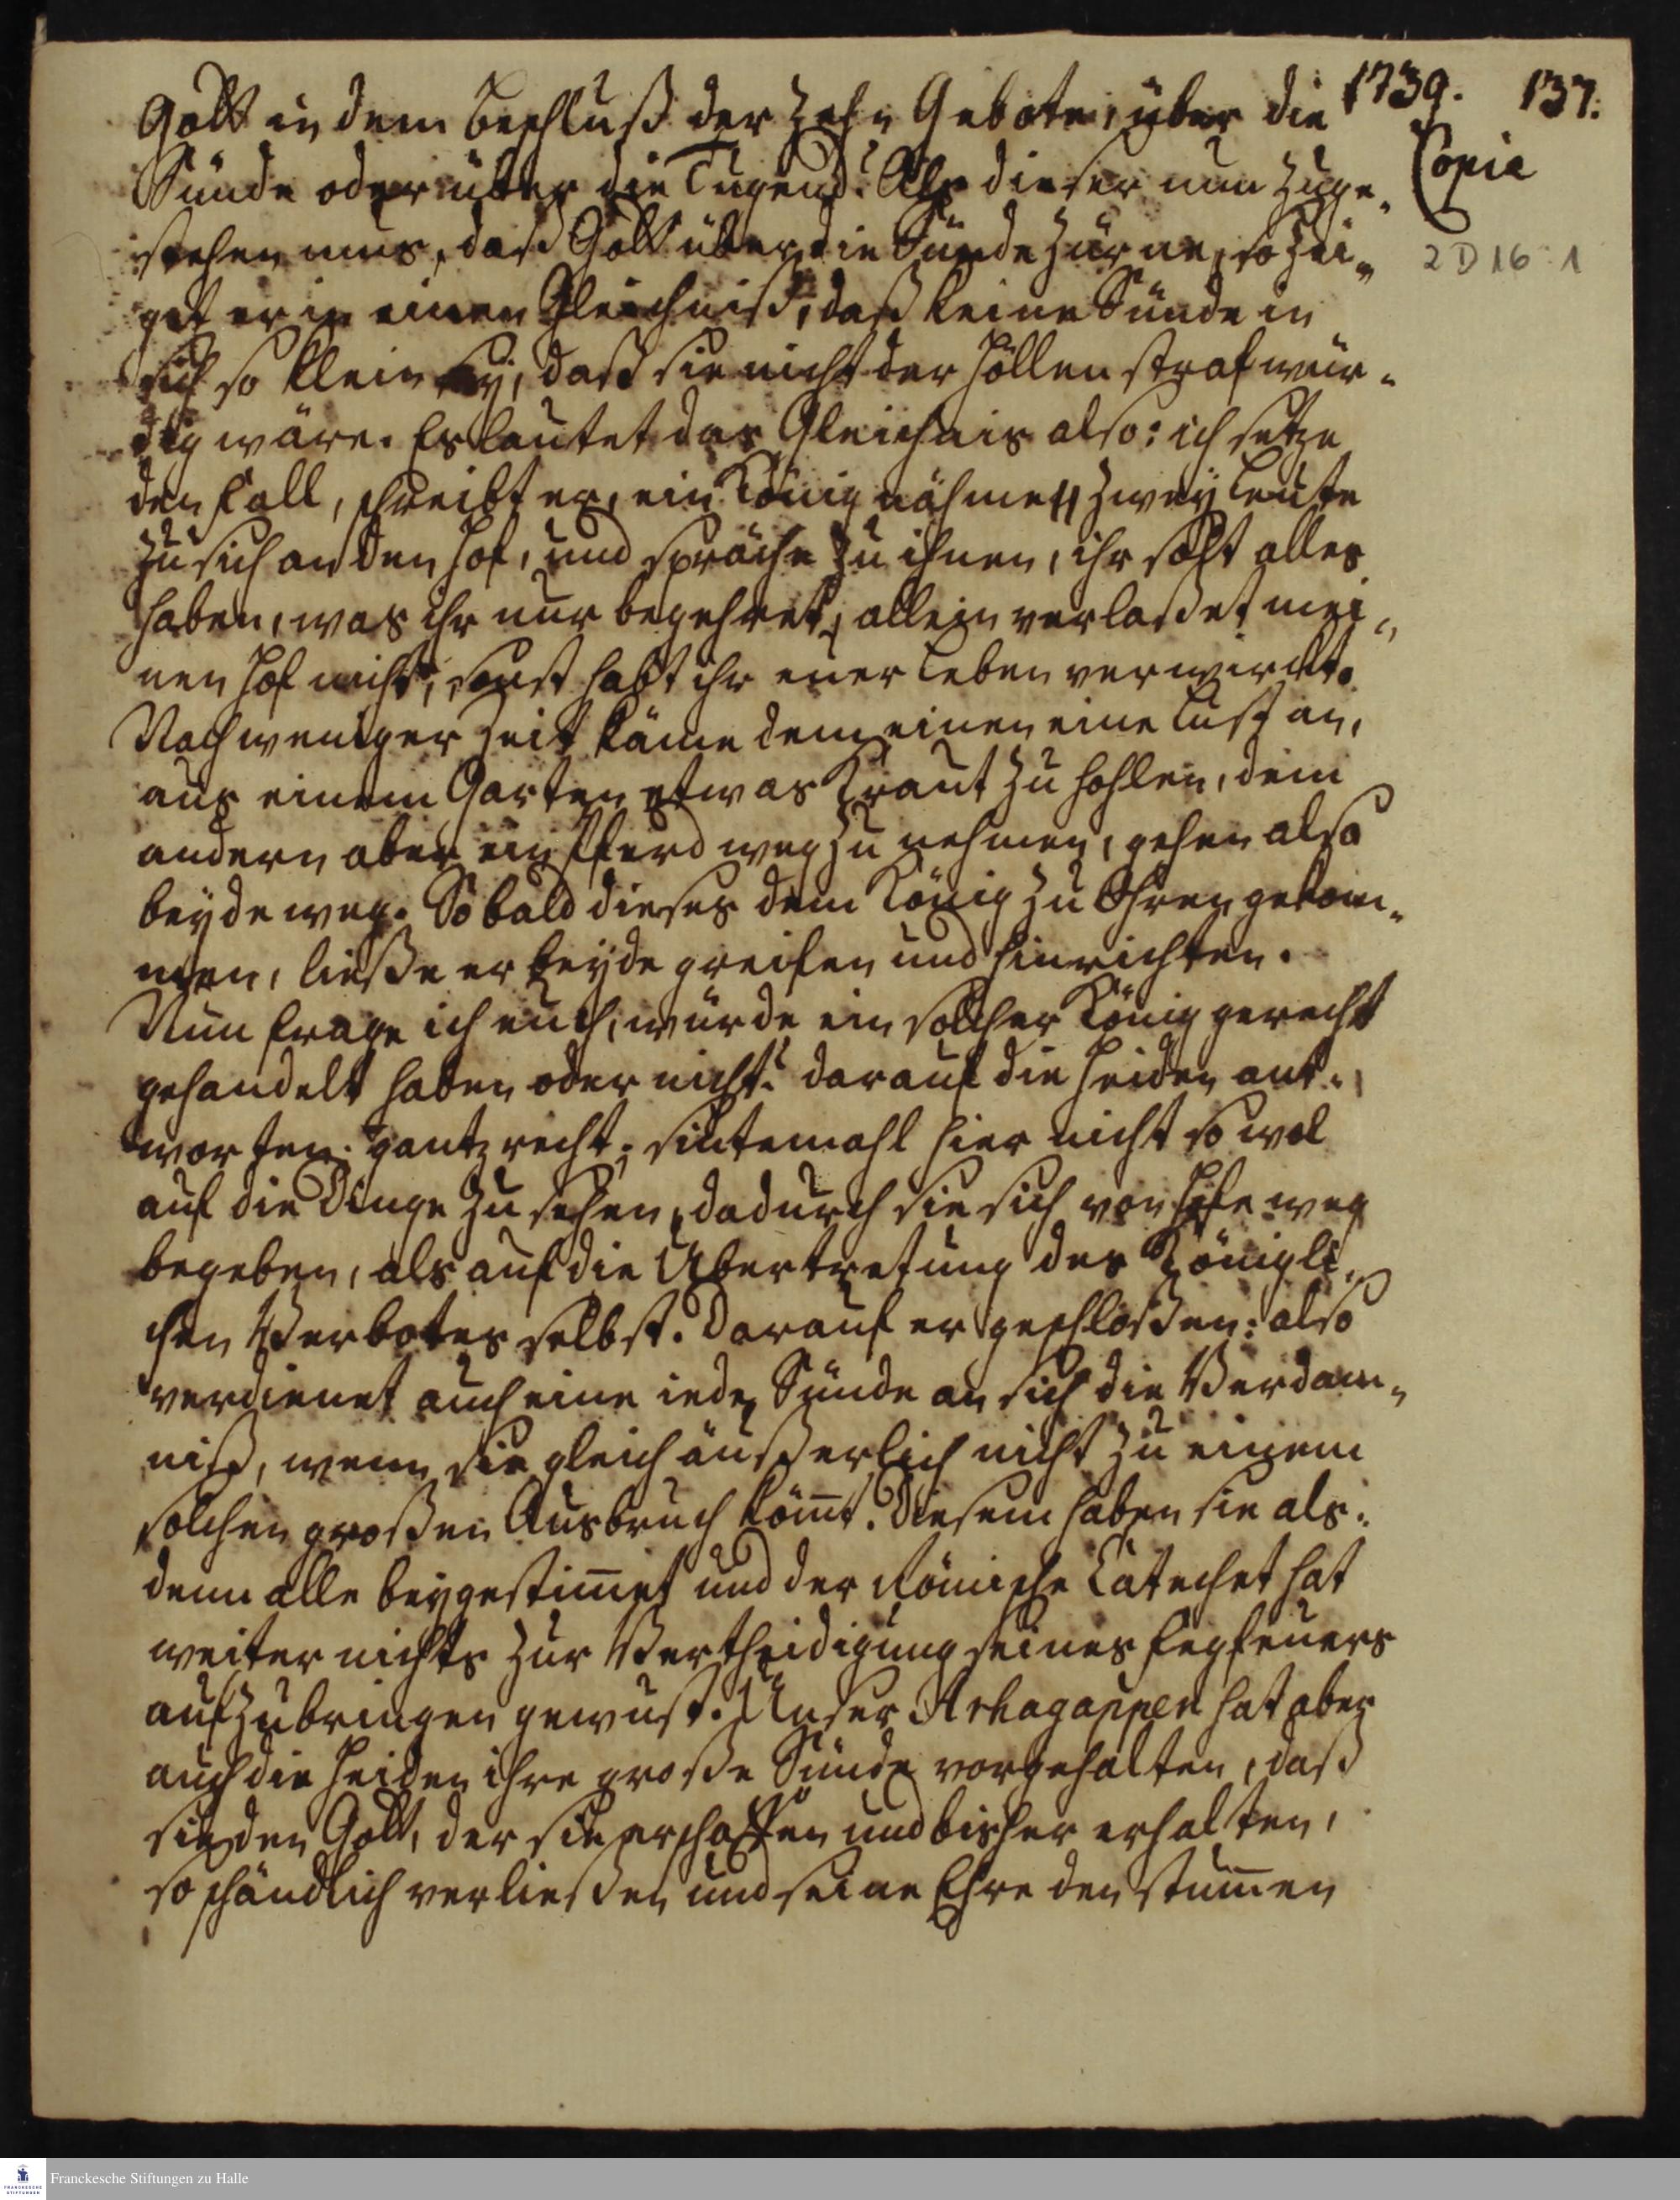 1739. 137.
Copia
2 D 16 : 1
Gott in dem Beschluß der Zehn Gebote, über die
Sünde oder über die Tugend? Als dieser nun zuge„
stehen mus, daß Gott über die Sünde zürne, so zei„
get er in einen Gleichniß, daß keine Sünde in
sich so klein sey, daß sie nicht der Höllen straf wür„
dig wäre. Es lautet das Gleichnis also: ich setze
den Fall, schreibt er, ein König nähme zwey Leute
zu sich an den Hof, und spräche zu ihnen, ihr solt alles
haben, was ihr nur begehret, allein verlaßet mei„
nen Hof nicht, sonst habt ihr euer Leben verwirckt.
Nach weniger Zeit käme dem einen eine Lust an,
aus einem Garten etwas Kraut zu hohlen, dem
andern aber ein Pferd weg zu nehmen, gehen also
beyde weg. So bald dieses dem König zu Ohren gekom„
men, ließe er beyde greifen und hinrichten.
Nun frage ich euch, würde ein solcher König gerecht
gehandelt haben oder nicht? darauf die Heiden ant„
worten: gantz recht; sintemahl hier nicht so wol
auf die Dinge zu sehen, dadurch sie sich von Hofe weg
begeben, als auf die Übertretung des Königli„
chen Verbotes selbst. Darauf er geschloßen: also
verdienet auch eine iede Sünde an sich die Verdam„
niß, wenn sie gleich äußerlich nicht zu einem
solchen großen Ausbruch kömt. Diesem haben sie als„
denn alle beygestimmet und der Römische Catechet hat
weiter nichts zur Vertheidigung seines Fegfeuers
aufzubringen gewust. Unser Arhagappen hat aber
auch die Heiden ihre große Sünde vorgehalten, daß
sie den Gott, der sie erschaffen und bisher erhalten,
so schändlich verließen und seine Ehre den stummen
Franckesche Stiftungen zu Halle